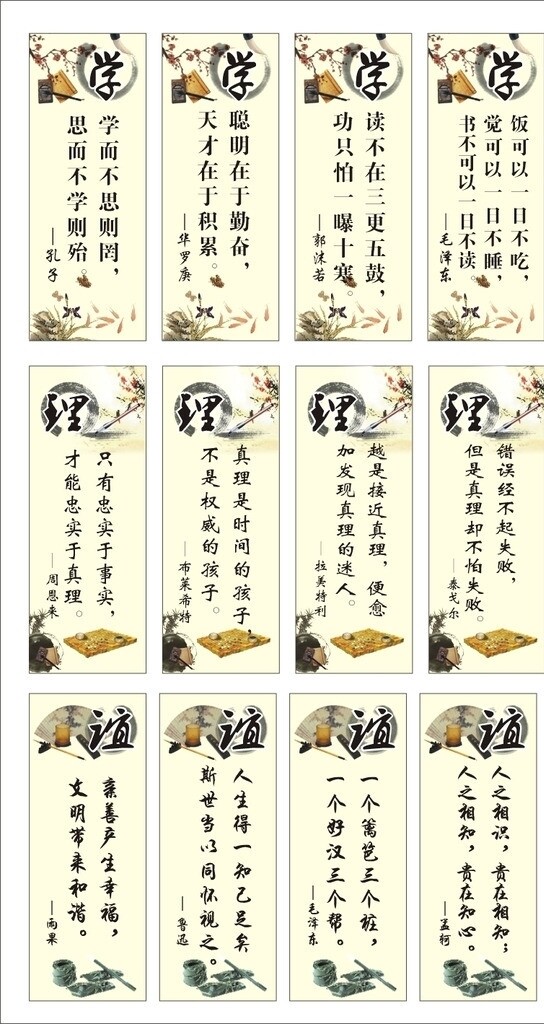 学
学而不思则罔，
思而不学则殆。
——孔子
学
聪明在于勤奋，
天才在于积累。
——华罗庚
学
读不在三更五鼓，
功只怕一曝十寒。
——郭沫若
学
饭可以一日不吃，
觉可以一日不睡，
书不可以一日不读。
——毛泽东
理
只有忠实于事实，
才能忠实于真理。
——周恩来
理
真理是时间的孩子，
不是权威的孩子。
——布莱希特
理
越是接近真理，便愈
加发现真理的迷人。
——拉美特利
理
错误经不起失败，
但是真理却不怕失败。
——泰戈尔
谊
亲善产生幸福，
文明带来和谐。
——雨果
谊
人生得一知己足矣
斯世当以同怀视之。
——鲁迅
谊
一个篱笆三个桩，
一个好汉三个帮。
——毛泽东
谊
人之相识，贵在相知；
人之相知，贵在知心。
——孟轲